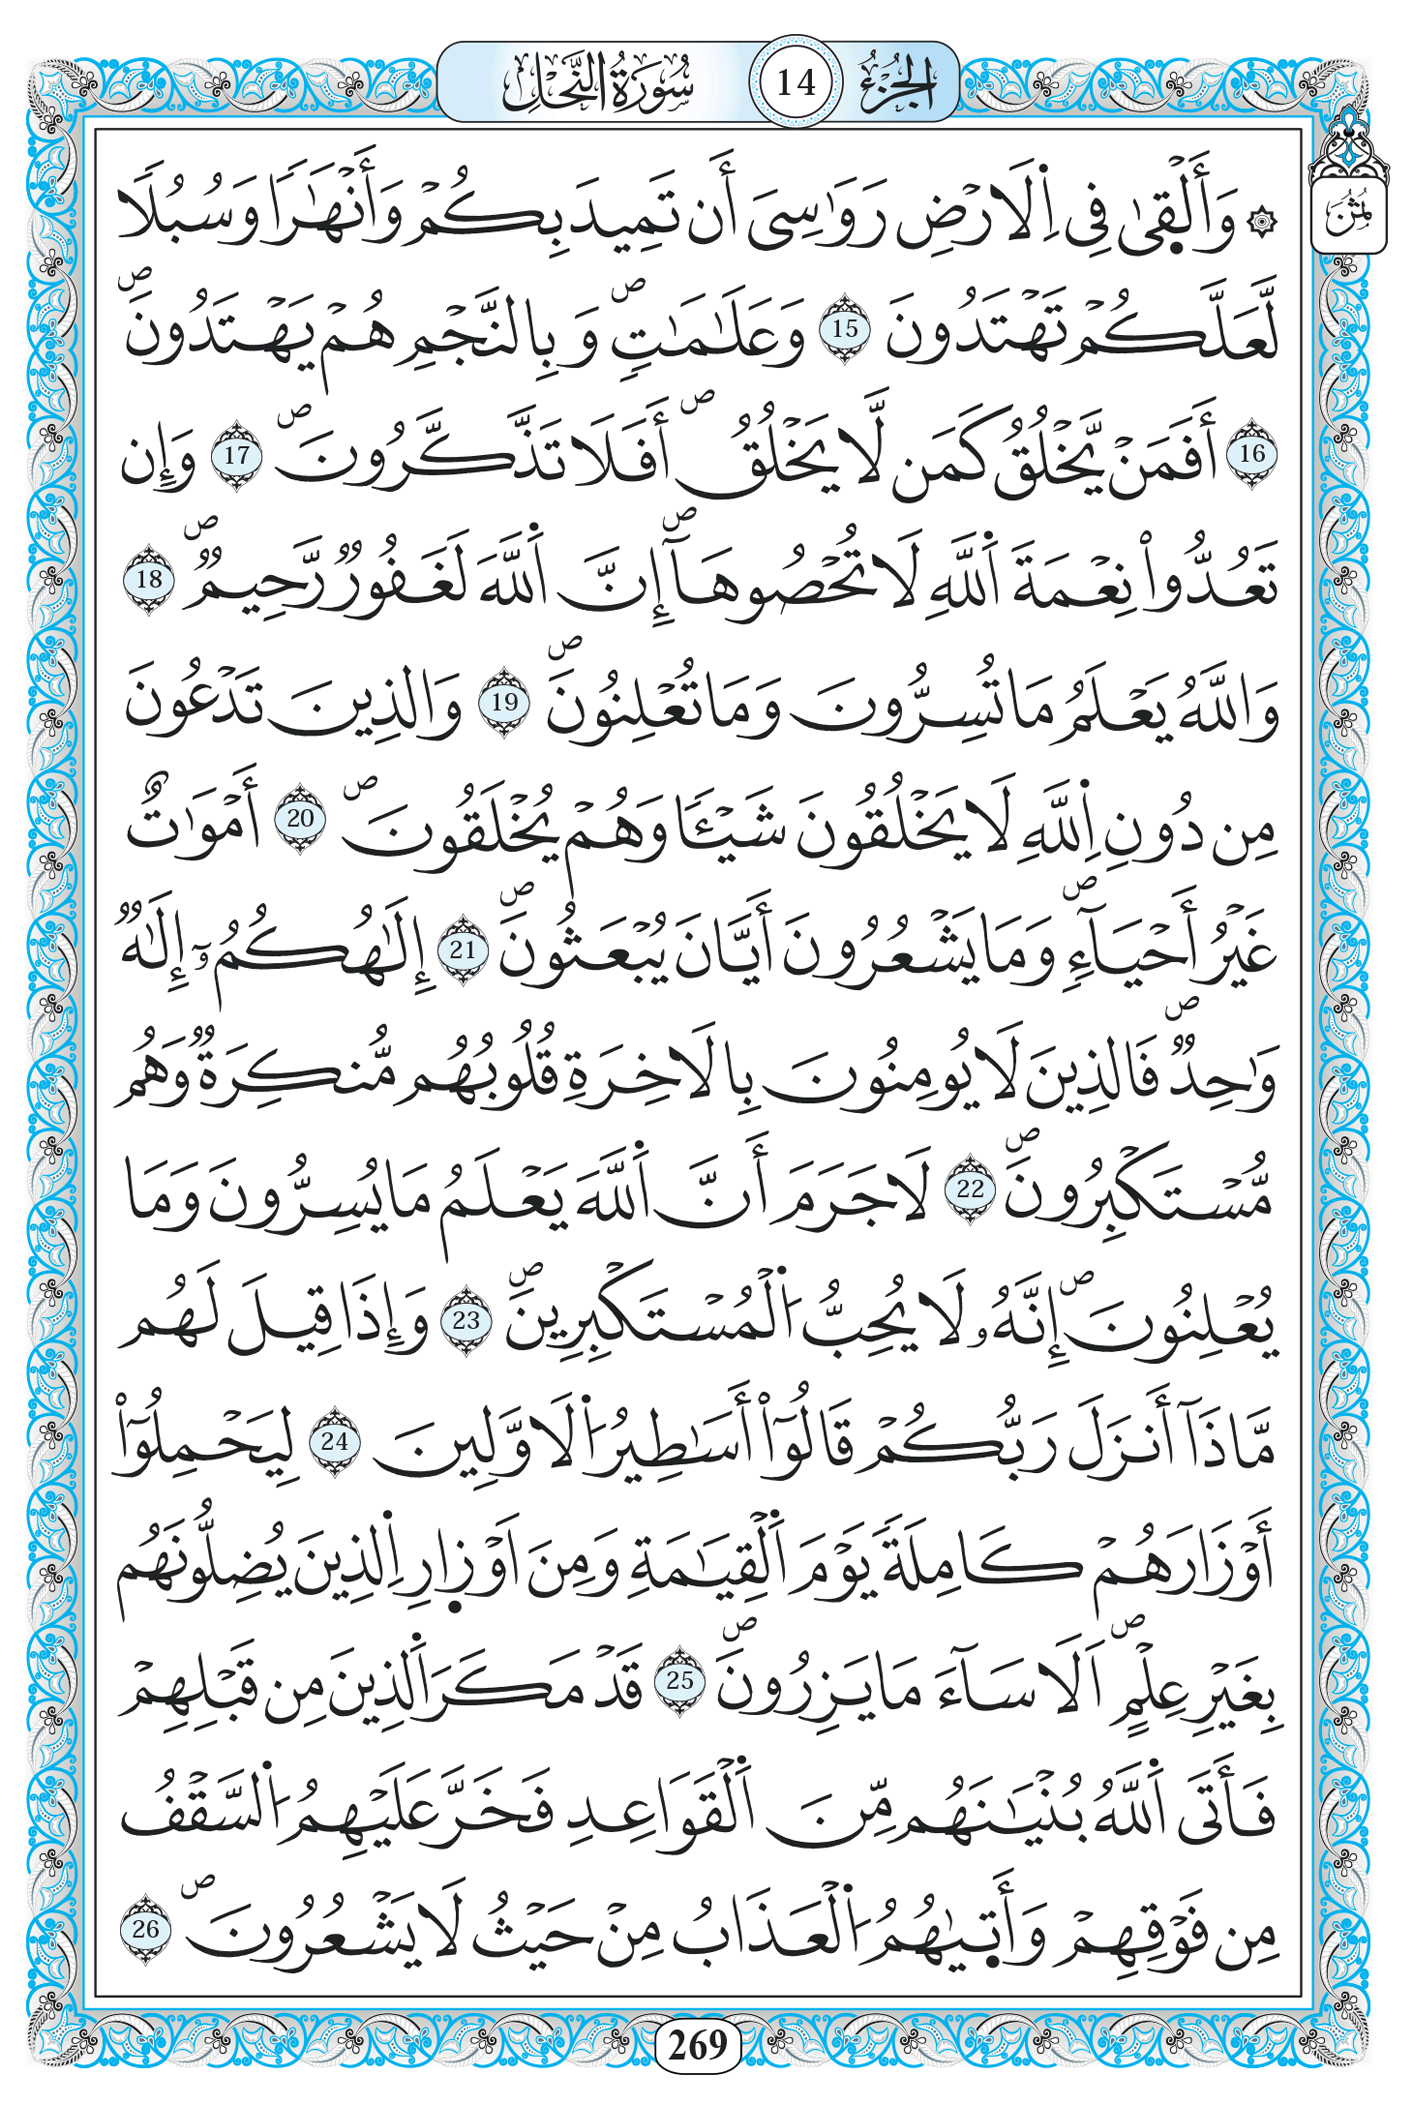 سُورَةُ النَّحْلِ 14 الجُزْءُ
ثُمُن
۞ وَأَلْق۪ىٰ فِي اِ۬لَارْضِ رَوَٰسِيَ أَن تَمِيدَ بِكُمْ وَأَنْهَٰراٗ وَسُبُلاٗ
لَّعَلَّكُمْ تَهْتَدُونَ 15 وَعَلَٰمَٰتٍۖ وَبِالنَّجْمِ هُمْ يَهْتَدُونَۖ
16 أَفَمَنْ يَّخْلُقُ كَمَن لَّا يَخْلُقُۖ أَفَلَا تَذَّكَّرُونَۖ 17 وَإِن
تَعُدُّواْ نِعْمَةَ اَ۬للَّهِ لَا تُحْصُوهَآۖ إِنَّ اَ۬للَّهَ لَغَفُورٞ رَّحِيمٞۖ 18
وَاللَّهُ يَعْلَمُ مَا تُسِرُّونَ وَمَا تُعْلِنُونَۖ 19 وَالذِينَ تَدْعُونَ
مِن دُونِ اِ۬للَّهِ لَا يَخْلُقُونَ شَيْـٔاٗ وَهُمْ يُخْلَقُونَۖ 20 أَمْوَٰتٌ
غَيْرُ أَحْيَآءٖۖ وَمَا يَشْعُرُونَ أَيَّانَ يُبْعَثُونَۖ 21 إِلَٰهُكُمُۥٓ إِلَٰهٞ
وَٰحِدٞۖ فَالذِينَ لَا يُومِنُونَ بِالَاخِرَةِ قُلُوبُهُم مُّنكِرَةٞ وَهُم
مُّسْتَكْبِرُونَۖ 22 لَا جَرَمَ أَنَّ اَ۬للَّهَ يَعْلَمُ مَا يُسِرُّونَ وَمَا
يُعْلِنُونَۖ إِنَّهُۥ لَا يُحِبُّ اُ۬لْمُسْتَكْبِرِينَۖ 23 وَإِذَا قِيلَ لَهُم
مَّاذَآ أَنزَلَ رَبُّكُمْ قَالُوٓاْ أَسَٰطِيرُ اُ۬لَاوَّلِينَ 24 لِيَحْمِلُوٓاْ
أَوْزَارَهُمْ كَامِلَةٗ يَوْمَ اَ۬لْقِيَٰمَةِ وَمِنَ اَوْز۪ارِ اِ۬لذِينَ يُضِلُّونَهُم
بِغَيْرِ عِلْمٍۖ اَلَا سَآءَ مَا يَزِرُونَۖ 25 قَدْ مَكَرَ اَ۬لذِينَ مِن قَبْلِهِمْ
فَأَتَى اَ۬للَّهُ بُنْيَٰنَهُم مِّنَ اَ۬لْقَوَاعِدِ فَخَرَّ عَلَيْهِمُ اُ۬لسَّقْفُ
مِن فَوْقِهِمْ وَأَت۪يٰهُمُ اُ۬لْعَذَابُ مِنْ حَيْثُ لَا يَشْعُرُونَۖ 26
269